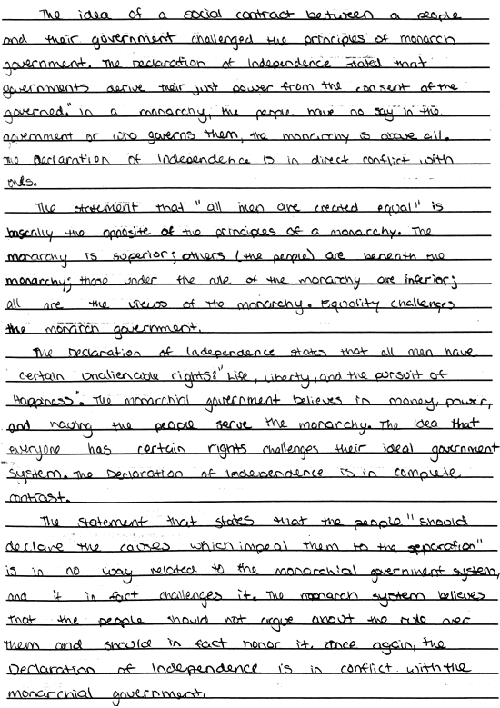 The idea of a social contract between a people
and their government challenged the principles of monarch
government. The Declaration of Independence stated that
governments derive their just power from the consent of the
governed." In a monarchy, the people have no say in the
government or who governs them, the monarchy is above all.
The Declaration of Independence is in direct conflict with
this.
The statement that "all men are created equal" is
bascally the opposite of the principles of a monarchy. The
monarchy is superior; others (the people) are beneath the
monarchy; those under the rule of the monarchy are inferior;
all are the views of the monarchy. Equality challenges
the monarch government.
The Declaration of Independence states that all men have
certain unalienable rights: "Life, Liberty, and the pursuit of
Happiness". The monarchial government believes in money, power,
and having the people serve the monarchy. The idea that
everyone has certain rights challenges their ideal government
system. The Declaration of Independence is in complete
contrast.
The statement that states that the people "should
declare the causes which impell them to the separation"
is in no way related to the monarchial government system,
and it in fact challenges it. The monarch system believes
that the people should not argue about the rule over
them and should in fact honor it. Once again, the
Declaration of Independence is in conflict with the
monarchial government.